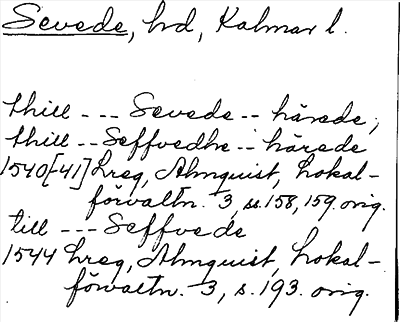 Sevede, hrd, Kalmar l.
thill --- Sevede -- härade,
thill -- Seffvedhe -- härade
1540[-41] Lreg, Almquist, Lokal-
förvaltn. 3, ss. 158, 159. orig.
till --- Seffvede
1544 Lreg, Almquist, Lokal-
förvaltn. 3, s. 193. orig.